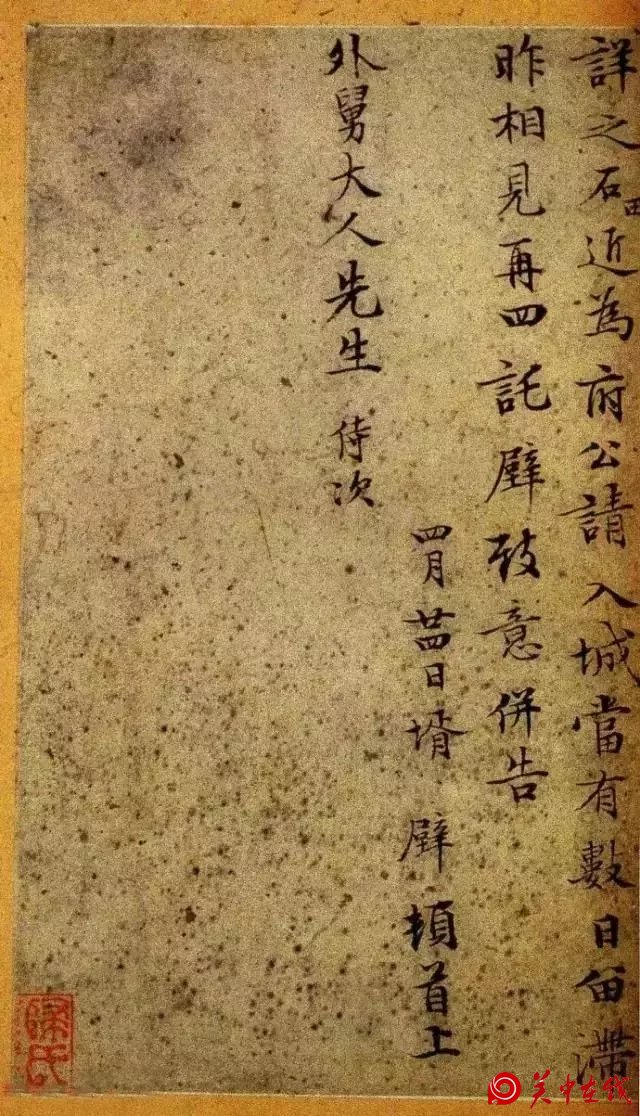 詳之石田近為府公請入城當有數日留滯
昨相見再四託璧致意併告
四月廿四日壻 璧 頓首上
外舅大人先生 侍次